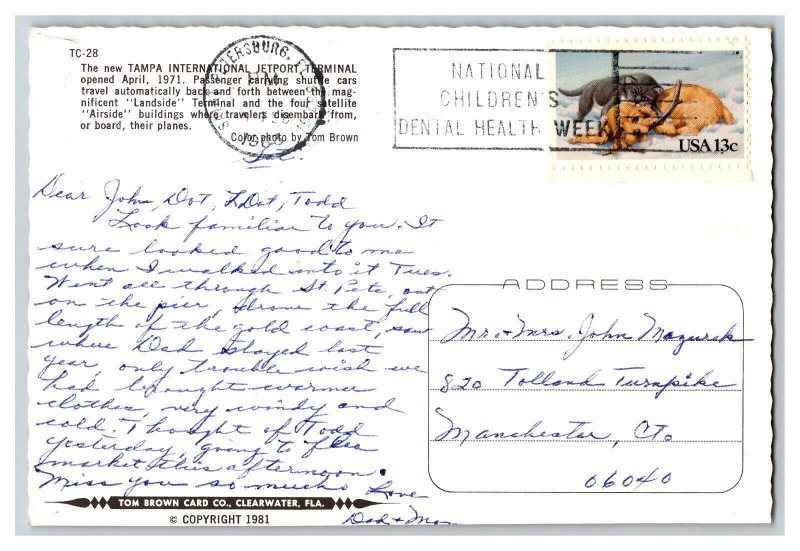 TC-28
The new TAMPA INTERNATIONAL JETPORT TERMINAL
opened April, 1971. Passenger carrying shuttle cars
travel automatically back and forth between the mag-
nificent "Landside" Terminal and the four satellite
"Airside" buildings where travelers disembark from,
or board, their planes.
Color photo by Tom Brown
ST. PETERSBURG, FL
PM
1983
NATIONAL
CHILDREN'S
DENTAL HEALTH WEEK
USA 13c
Sat.
Dear John, Dot, L Dot, Todd
Look familiar to you. It
sure looked good to me
when I walked into it Tues.
Went all through St. Pete, out
on the pier, drove the full
length of the gold coast, saw
where Dad stayed last
year, only trouble wish we
had brought warmer
clothes, very windy and
cold. Thought of Todd
yesterday, going to flea
market this afternoon.
Miss you so much. Love
Dad + Mom
ADDRESS
Mr. + Mrs. John Mazurek
820 Tolland Turnpike
Manchester, Ct.
06040
TOM BROWN CARD CO., CLEARWATER, FLA.
© COPYRIGHT 1981